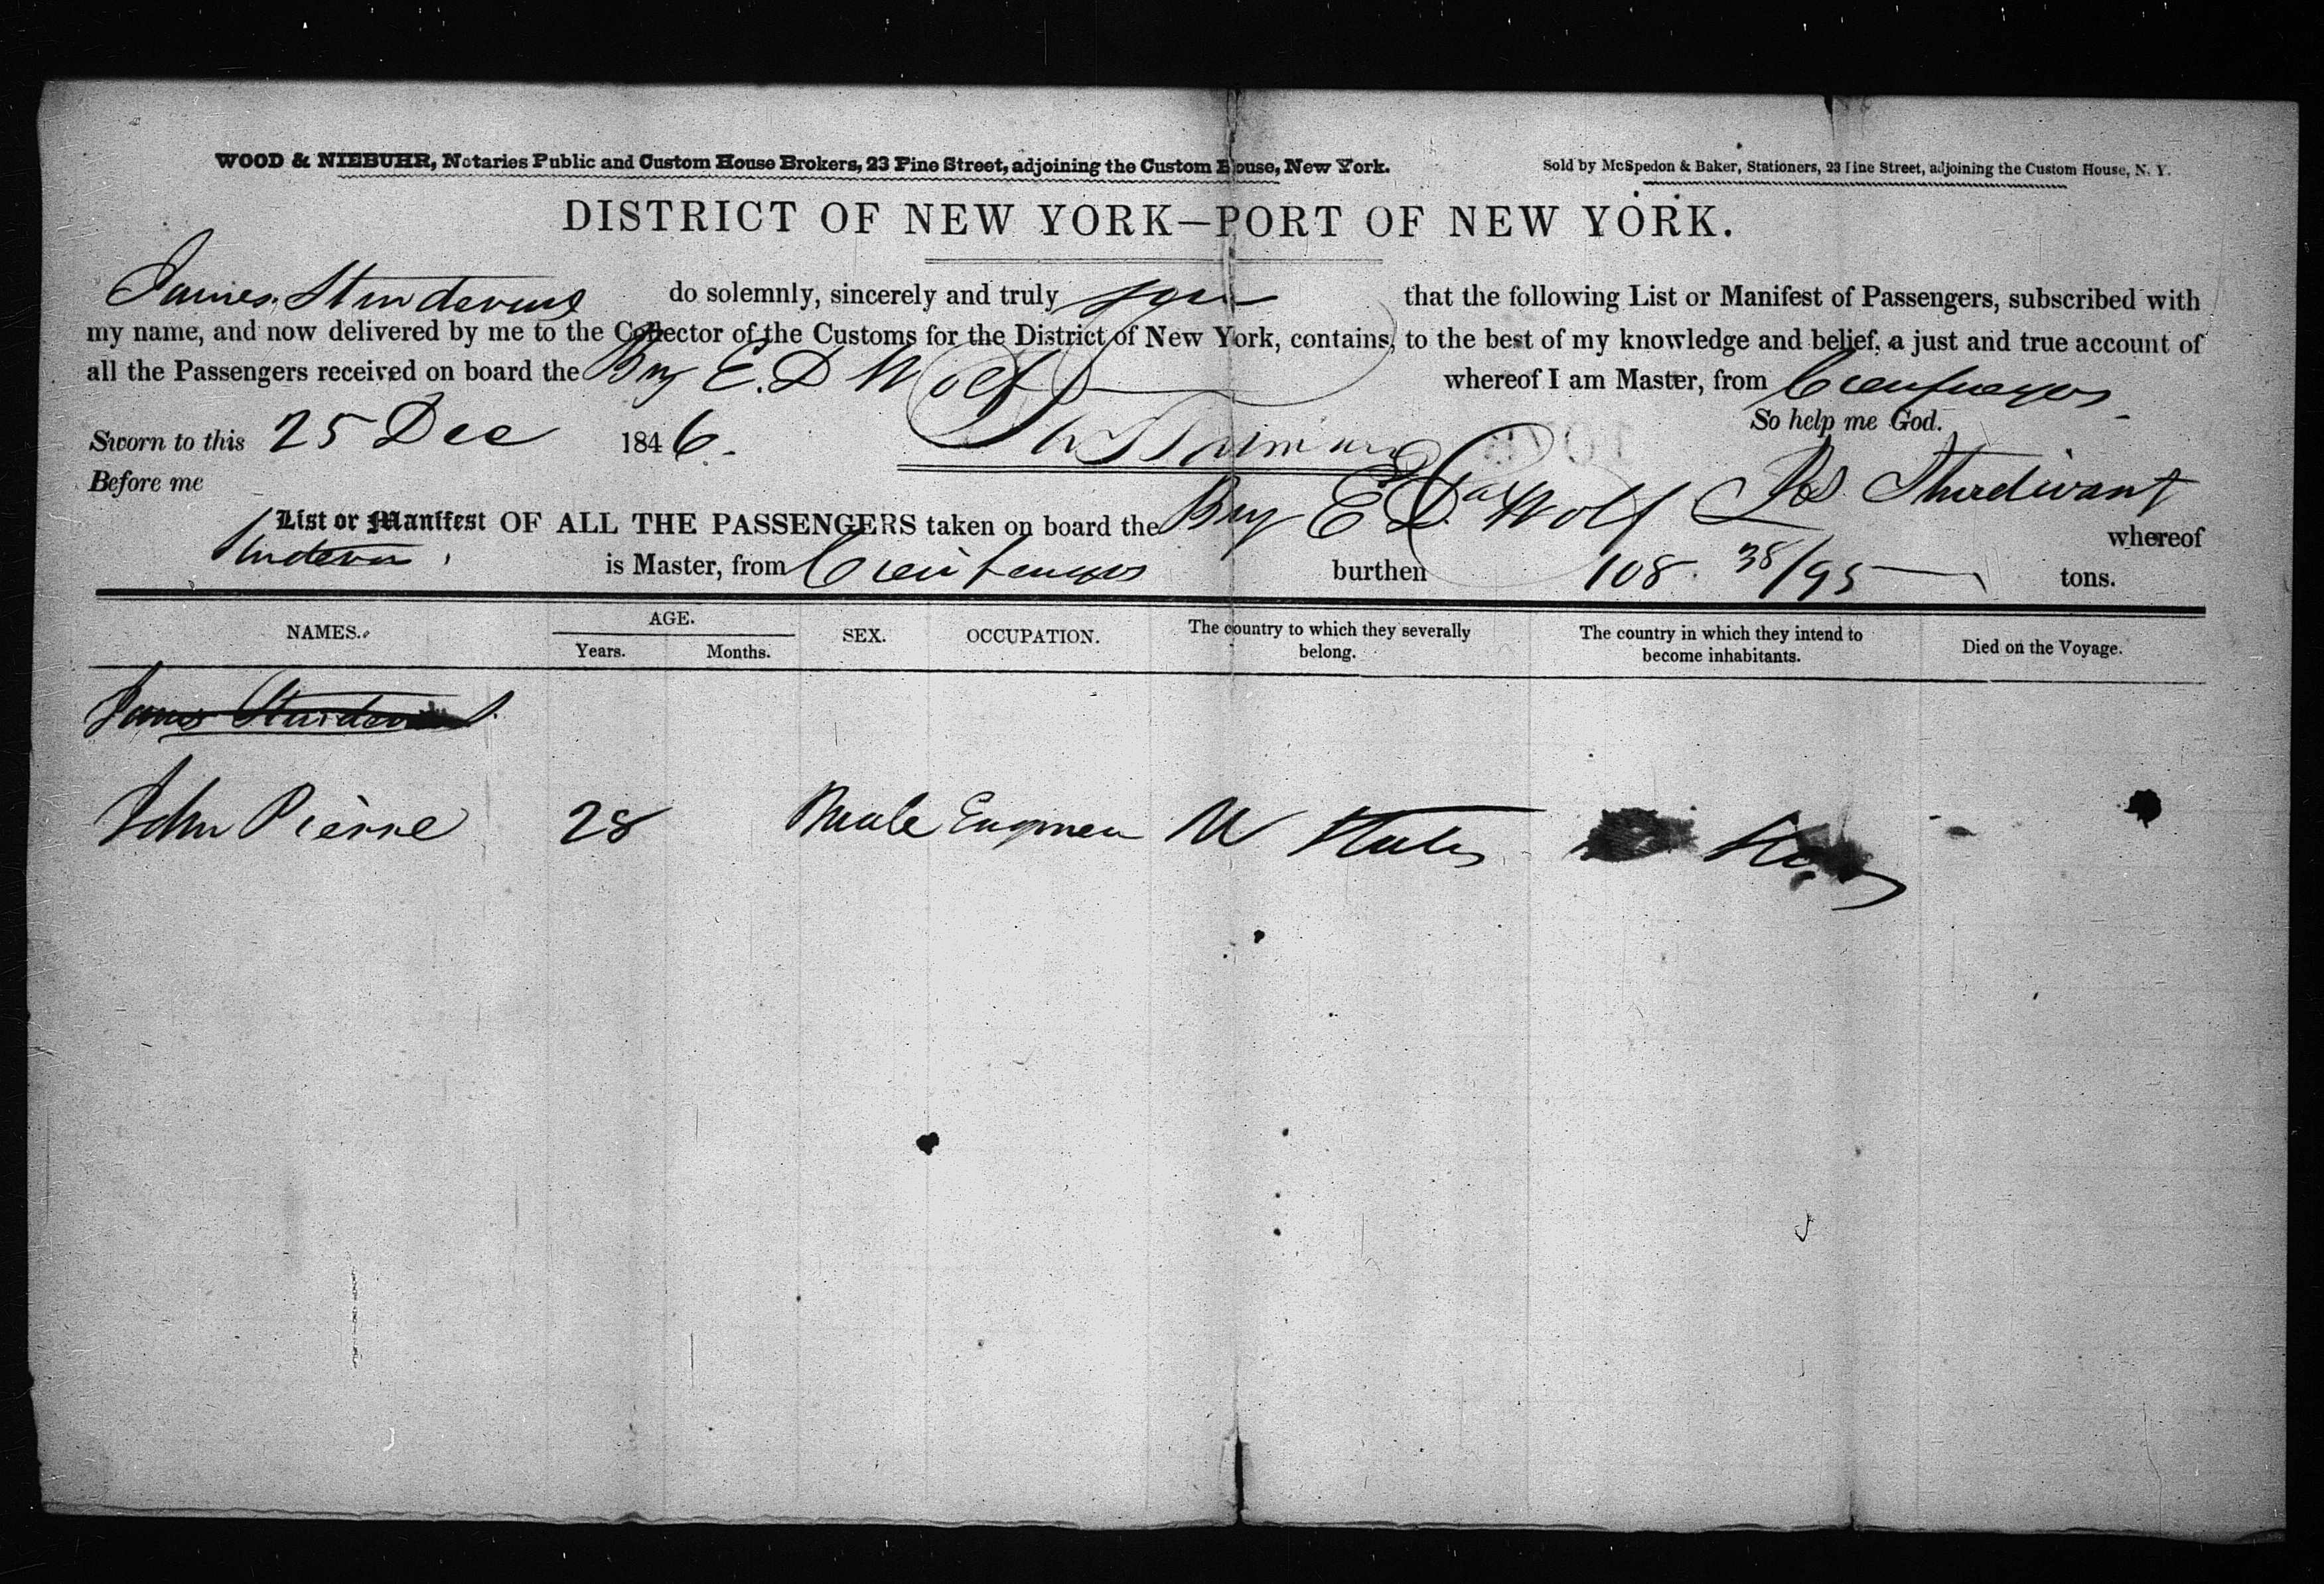 WOOD & NIEBUHR, Notaries Public and Custom House Brokers, 23 Pine Street, adjoining the Custom House, New York.
Sold by McSpedon & Baker, Stationers, 23 Pine Street, adjoining the Custom House, N. Y.
DISTRICT OF NEW YORK—PORT OF NEW YORK.
James Sturdevant do solemnly, sincerely and truly swear that the following List or Manifest of Passengers, subscribed with
my name, and now delivered by me to the Collector of the Customs for the District of New York, contains, to the best of my knowledge and belief, a just and true account of
all the Passengers received on board the Brig E. D Wolf whereof I am Master, from Cienfuegos
So help me God.
Sworn to this 25 Dec 1846.
Before me
Jas Sturdivant
List or Manifest OF ALL THE PASSENGERS taken on board the Brig E D Wolf whereof
Sturdevan is Master, from Cienfuegos burthen 108. 38/95 tons.
NAMES. AGE. SEX. OCCUPATION. The country to which they severally belong. The country in which they intend to become inhabitants. Died on the Voyage.
Years. Months.
James Sturdevant
John Pierre 28 Male Engineer U States